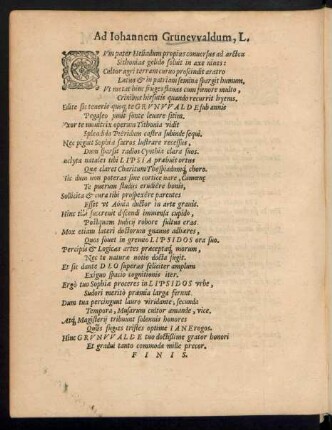 Ad Iohannem Grunevvaldum, L.
Cum pater Heliadum propius conuersus ad arcton
Sithonias gelido soluit in axe niues:
Cultor agri terram curuo proscindit aratro
Lætus & in patriam semina spargit humum,
Vt metat hinc fruges flauas cum fœnore multo,
Crinibus hirsutis quando recurrit hyems,
Haud sic teneris quoq; te GRVNVVALDE sub annis
Pegaseo iussit fonte leuare sitim.
nutrix operam Tithonia vidit
Splendida Pieridum castra subinde sequi.
Nec piguit Sophiæ sacros lustrare recessus,
Dum sparsit radios Cynthia clara suos.
Inclyta natales tibi LIPSIA præbuit ortus
Quæ claret Charitum Thespiadumq; choro.
Tu dum non poteras sine cortice nare, Camœnæ
Te puerum studiis erudiêre bonis,
Sollicita & cura tibi prospexêre parentes
Esset vt Aonia ductor in arte gravis.
Hinc illa succrevit discendi immensa cupido,
Postquam tubuit robore fultus eras.
Mox etiam lateri doctorum gnauus adhæres,
Quos fouet in gremio LIPSIDOS ora suo.
Percipis & Logicas artes præceptaq; morum,
Nec te naturæ notio docta fugit.
Et sic dante DEO superas feliciter amplum
Exiguo spacio cognitionis iter.
Ergò tuo Sophia proceres in LIPSIDOS vrbe,
Sudori meritò præmia larga ferunt.
Dum tua percingunt lauro viridante, secunda
Tempora, Musarum cultor amande, vice.
Atq; Magisterij tribuunt solennis honores
Quos fugies tristes optime IANE rogos.
Hinc GRVNVVALDE tuo doctissime grator honori
Et gradui tanto commoda mille precor.
FINIS.